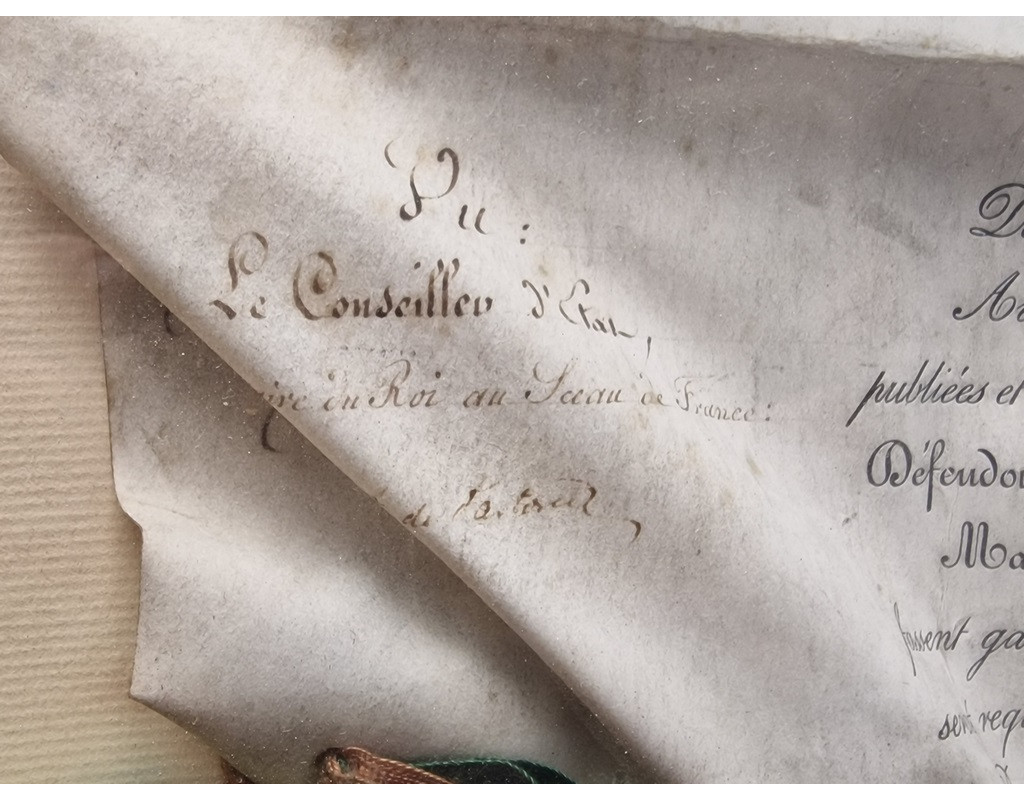 Vu :
Le Conseiller d'Etat,
ire du Roi au Sceau de France :
de
D
A
publiées et
Défendon
Ma
fassent ga
ser req